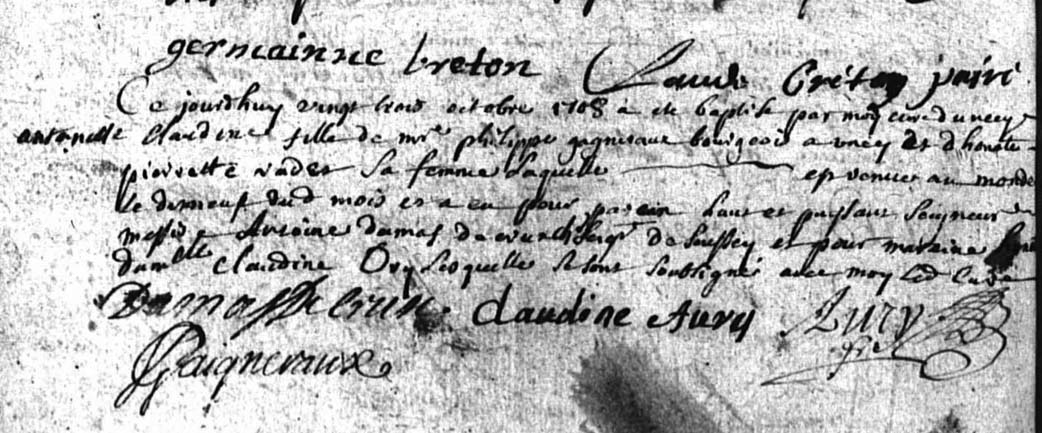 germainne breton Claude Créton
Ce jourdhuy vingt trois octobre 1708 a été baptisé par moy curé d uncey
antoinette claudine fille de mre philippe gagneraux bourgeois a uncey et d honete
pierrette vadet sa femme laquelle est venuee au monde
le dixneuf dud mois et a eu pour parein haut et puissant seigneur
messire Antoine damas de crux seigr de soussey et pour maraine
damlle claudine Ory lesquelle se sont soubsigné avec moy led curé
Damas De crux claudine Aury Aury
Gaigneraux